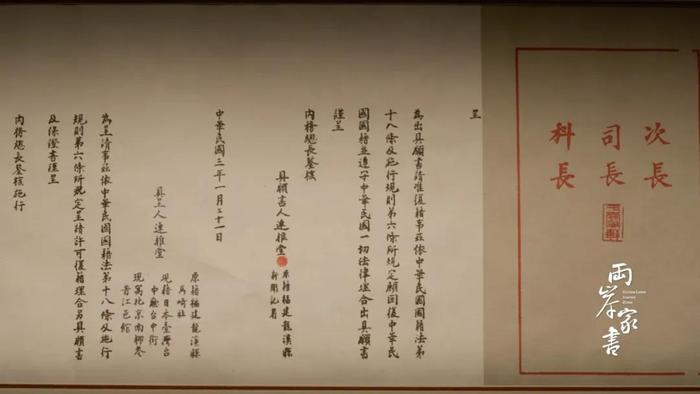 次長
司長
科長
呈
為出具願書請准復籍事茲依中華民國國籍法第
十八條及施行規則第六條所規定願回復中華民
國國籍並遵守中華民國一切法律理合出具願書
謹呈
內務總長鑒核
具願書人連雅堂
原籍福建龍溪縣
新聞記者
中華民國三年一月三十一日
具呈人連雅堂
原籍福建龍溪縣
馬崎社
現籍日本臺灣台
中廳台中街
現寓北京南柳巷
晉江邑館
為呈請事茲依中華民國國籍法第十八條及施行
規則第六條所規定呈請許可復籍理合另具願書
及保證書謹呈
內務總長鑒核施行
兩岸家書